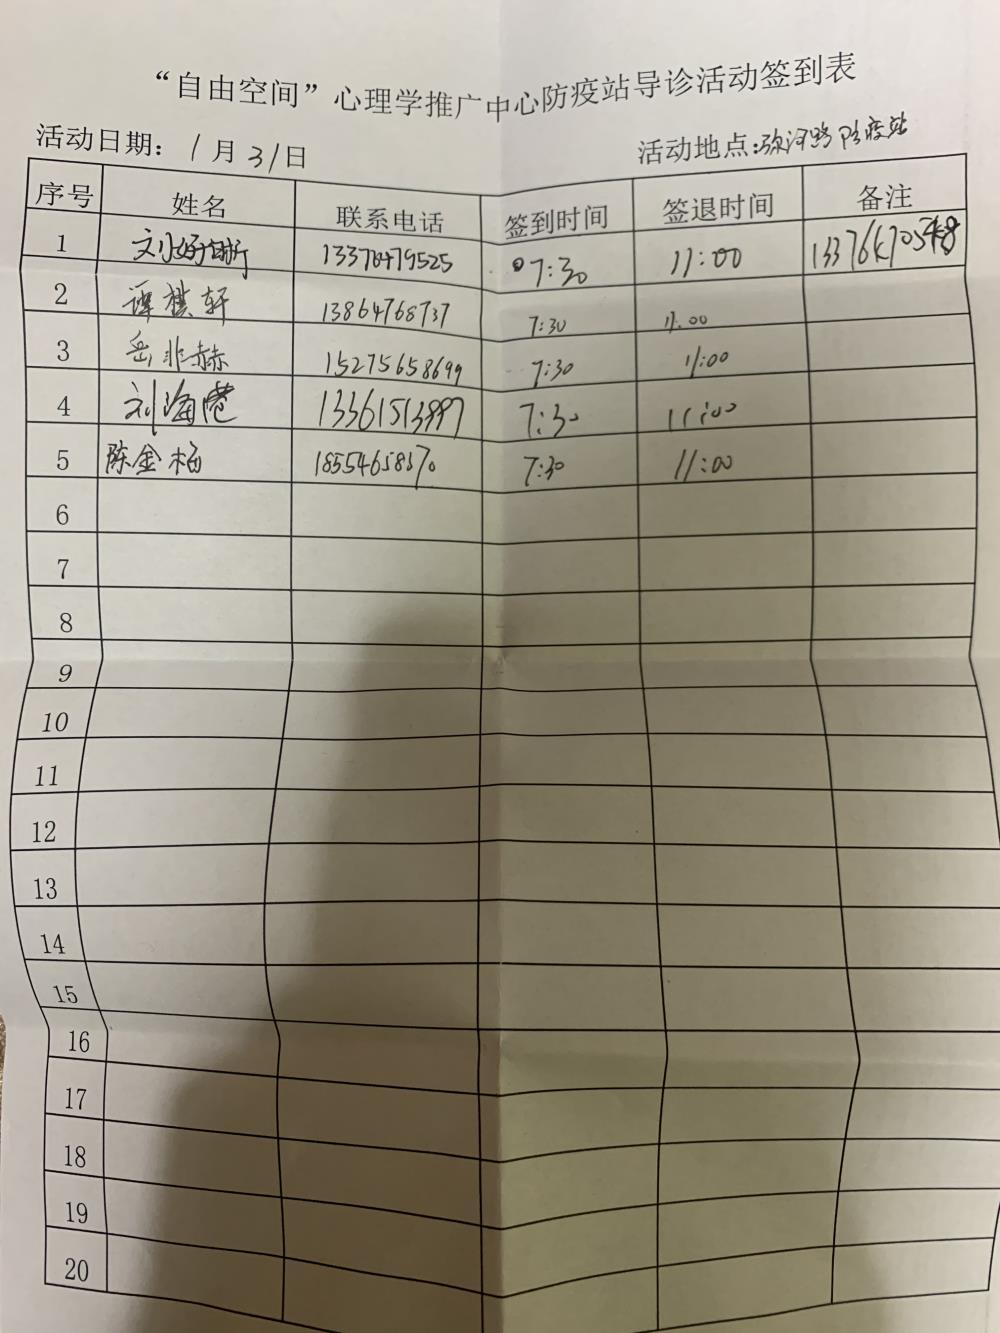 “自由空间”心理学推广中心防疫站导诊活动签到表
活动日期：1月31日 活动地点：弥河路防疫站
序号 姓名 联系电话 签到时间 签退时间 备注
1 7:30 11:00
2 谭棋轩 13864768737 7:30 11:00
3 岳非赫 15275658699 7:30 11:00
4 刘海港 7:30 11:00
5 陈金杨 7:30 11:00
6
7
8
9
10
11
12
13
14
15
16
17
18
19
20